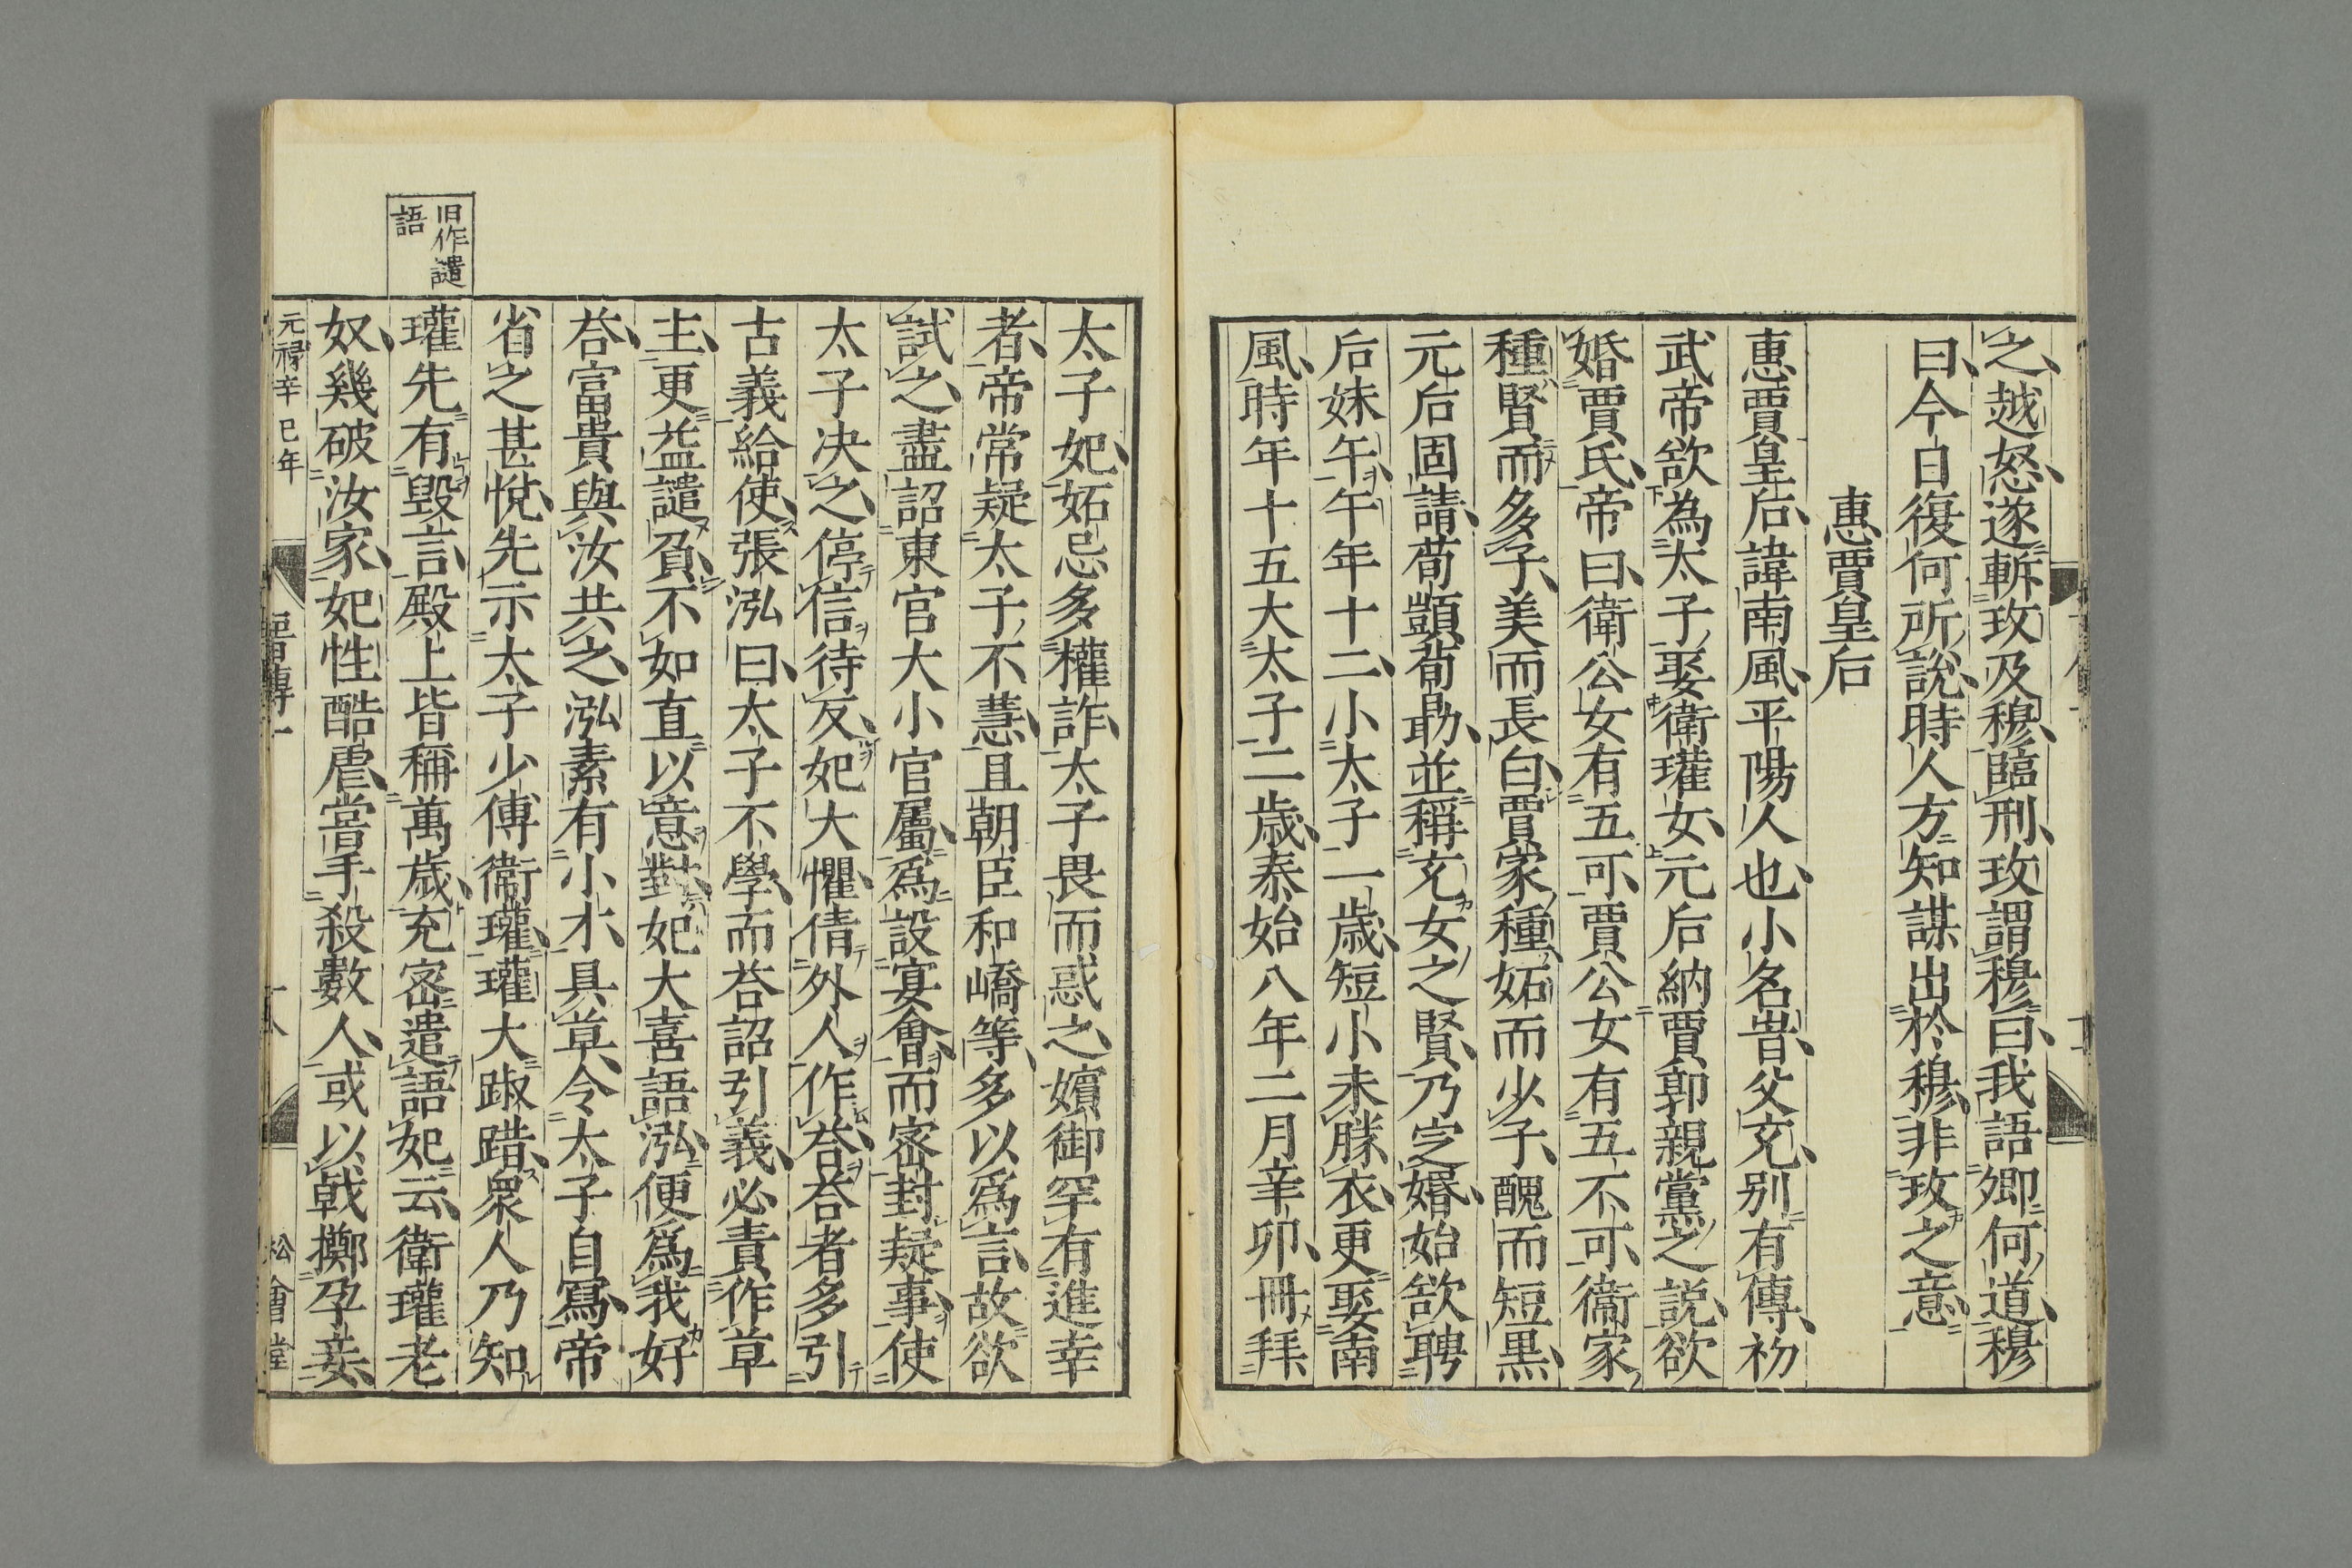 之越怒遂斬攻及穆臨刑攻謂穆曰我語卿何道穆
曰今日復何所說時人方知謀出於穆非攻之意
惠賈皇后
惠賈皇后諱南風平陽人也小名旹父充別有傳初
武帝欲為太子娶衛瓘女元后納賈郭親黨之說欲
婚賈氏帝曰衛公女有五可賈公女有五不可衛家
種賢而多子美而長白賈家種妬而少子醜而短黒
元后固請荀顗荀勗並稱充女之賢乃定婚始欲聘
后妹午午年十二小太子一歲短小未勝衣更娶南
風時年十五大太子二歲泰始八年二月辛卯冊拜
太子妃妬忌多權詐太子畏而惑之嬪御罕有進幸
者帝常疑太子不慧且朝臣和嶠等多以爲言故欲
試之盡詔東宮大小官屬爲設宴會而密封疑事使
太子决之停信待反妃大懼倩外人作荅荅者多引
古義給使張泓曰太子不學而荅詔引義必責作草
主更益譴負不如直以意對妃大喜語泓便爲我好
荅富貴與汝共之泓素有小才具草令太子自寫帝
省之甚悅先示太子少傅衛瓘瓘大踧踖衆人乃知
旧作譴
語
瓘先有毀言殿上皆稱萬歲充密遣語妃云衛瓘老
奴幾破汝家妃性酷虐嘗手殺數人或以戟擲孕妾
元禄辛巳年
晉傳一
十八
松會堂